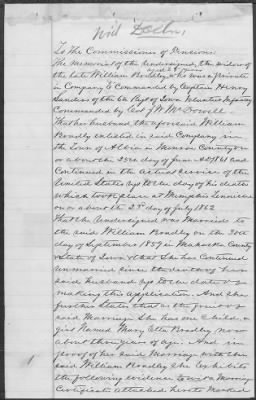 Wid Decln,
To the Commissioner of Pensions
The Memorial of the Undersigned, the widow of
the late William Bradley, who was a private
in Company E Commanded by Captain Henry
Sanders of the 6th Regt of Iowa Volunteer Infantry
Commanded by Col J W McDowell
That her husband the aforesaid William
Bradly enlisted in said Company in
the Town of Albia in Monroe County on
or about the 25th day of June AD 1861 and
Continued in the actual service of the
United States up to the day of his death
which took place at Memphis Tennessee
on or about the 2nd day of July 1862
That the Undersigned was Married to
the said William Bradley on the 30th
day of September 1859 in Mahaska County
State of Iowa that She has Continued
unmarried since the death of her
said Husband up to the date of
making this application. And she
further States that as the fruit of
said Marriage She has one Child, a
girl Named Mary Etta Bradley now
about three years of age. And in
proof of her said Marriage with the
said William Bradley She Exhibits
the following evidence to wit a Marriage
Certificate attached hereto Marked